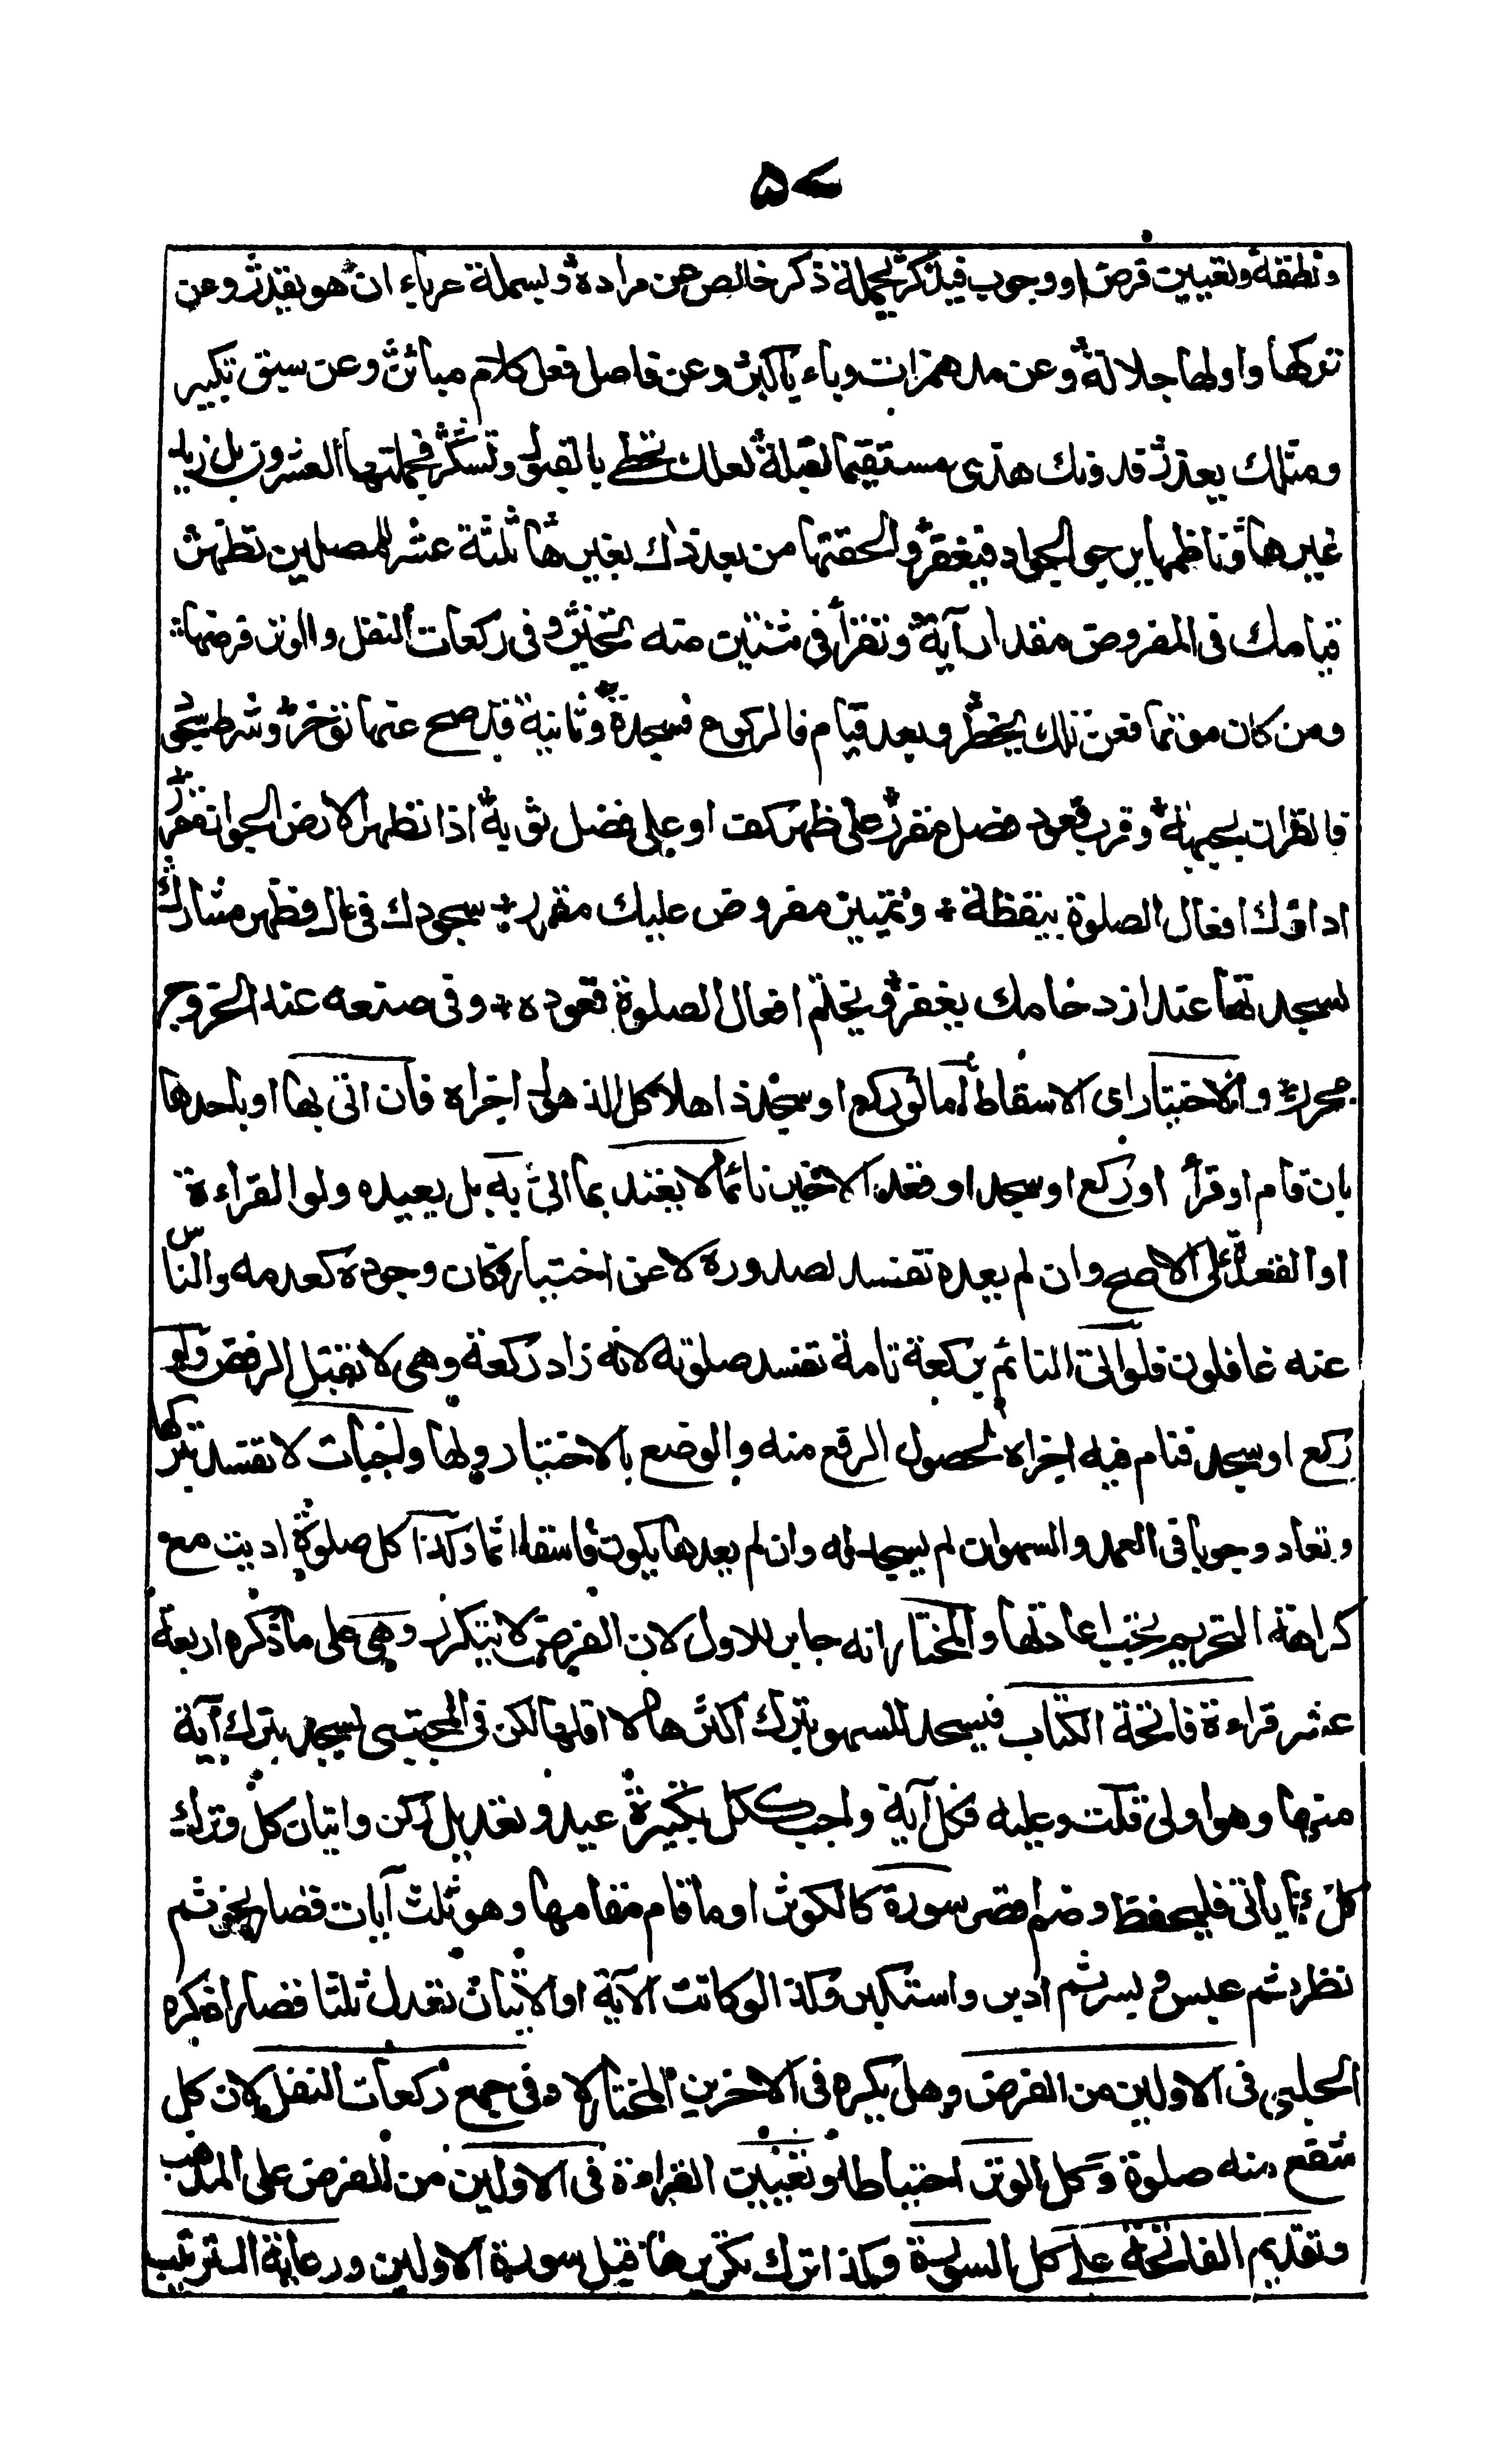 ۵۷
ونطقه وتعيين فرض او وجوب فيذكر بجملة ذكر خالص عن مراده وبسملة عرباء ان هو يقدر وعن
تركها واولها جلالة وعن مد همزات وباء باكبر وعن فاصل فعل كلام مبائن وعن سبق تكبير
ومثلك يعذر فدونك هذى مستقيما لقبلة لعلك تحظى بالقبول وتشكر فجملتها العشرون بل زيد
غيرها وناظمها يرجو الجواد فيغفر والحقتها من بعد ذاك بغيرها ثلثة عشر للمصلين تظهر
قيامك فى المفروض مقدار آية وتقرأ فى ثنتين منه تخير وفى ركعات النفل والوتر فرضها
ومن كان مؤتما فعن تلك يحظر وبعد قيام فالركوع فسجدة وثانية قد صح عنها تؤخر وشرط سجود
فالقرار بجبهة وقرب قعود فصل مقرر على ظهر كف او على فضل ثوبه اذا تطهر الارض الجواز مقرر
اداؤك افعال الصلوة بيقظة وتمييز مفروض عليك مقرر سجودك فى عال فظهر مشارك
لسجدتها عند ازدحامك يغفر ويختم افعال الصلوة قعوده وفى صنعه عنه الخروج
محرر والاختيار اى الاسقاط اما لو ركع او سجد ذاهلا كل الذهول اجزاه فان اتى بها او باحدها
بان قام او قرأ او ركع او سجد او قعد الاخير نائما لا يعتد بما اتى به بل يعيده ولو القراءة
او القعدة على الاصح وان لم يعده تفسد لصدوره لا عن اختيار فكان وجوده كعدمه والناس
عنه غافلون فلو اتى النائم بركعة تامة تفسد صلوته لانه زاد ركعة وهى لا تقبل الرفض ولو
ركع او سجد فنام فيه اجزاه لحصول الرفع منه والوضع بالاختيار ولها واجبات لا تفسد بتركها
وتعاد وجوبا فى العمد والسهو ان لم يسجد له وان لم يعدها يكون فاسقا اثما وكذا كل صلوة اديت مع
كراهة التحريم تجب اعادتها والمختار انه جابر للاول لان الفرض لا يتكرر وهى على ما ذكره اربعة
عشر قراءة فاتحة الكتاب فيسجد للسهو بترك اكثرها لا اقلها لكن فى المجتبى يسجد بترك آية
منها وهو اولى قلت وعليه فكل آية واجب ككل تكبيرة عيد وتعديل ركن واتيان كل وترك
كل كما ياتى فليحفظ وضم اقصر سورة كالكوثر او ما قام مقامها وهو ثلث آيات قصار نحو ثم
نظر ثم عبس وبسر ثم ادبر واستكبر وكذا لو كانت الآية او الآيتان تعدل ثلثا قصارا ذكره
الحلبى فى الاوليين من الفرض وهل يكره فى الاخريين المختار لا وفى جميع ركعات النفل لان كل
شفع منه صلوة وكل الوتر احتياطا وتعيين القراءة فى الاوليين من الفرض على المذهب
وتقديم الفاتحة على كل السورة وكذا ترك تكريرها قبل سورة الاوليين ورعاية الترتيب